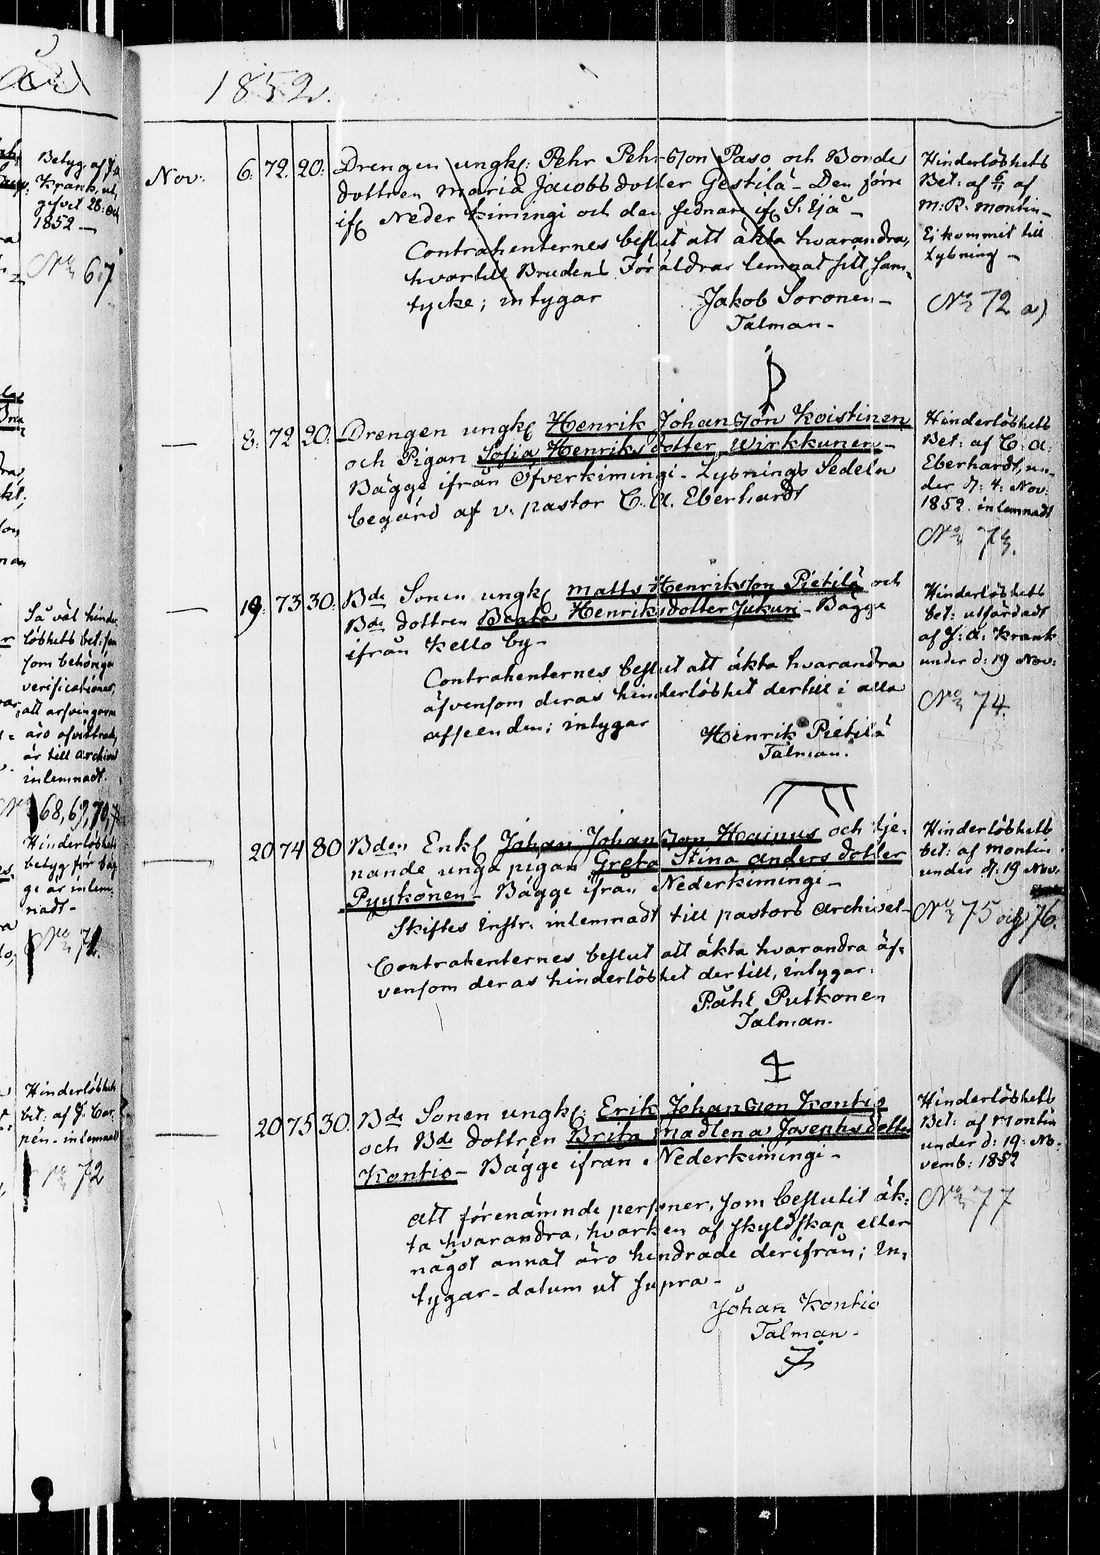 1852.
Nov: 6. 72. 20. Drengen ungk: Pehr Pehrsson Paso och Bonde
dottren Maria Jacobsdotter Gestilä - Den förre
ifr Neder kimingi och den sednare ifr S. Ijå -
Contrahenternes beslut att äkta hvarandra,
hvartill Brudens Föräldrar lemnat sitt sam-
tycke; intygar Jakob Soronen -
Talman -
Hinderlöshets
Bet: af 6/11 af
M: R: Montin -
Ei kommit till
Lysning -
No 72 a)
— 8. 72 20. Drengen ungk Henrik Johansson Koistinen
och Pigan Sofia Henriksdotter Wirkkunen -
Bägge ifrån Öfverkimingi - Lysnings Sedeln
begärd af v: pastor C. A. Eberhardt
Hinderlöshets
Bet: af C. A.
Eberhardt, un-
der d: 4: Nov:
1852. inlemnadt
No 73.
— 19. 73 30. Bde Sonen ungk Matts Henriksson Pietilä och
Bde dottren Beata Henriksdotter Jukun - Bägge
ifrån Kello by -
Contrahenternes beslut att äkta hvarandra
äfvensom deras hinderlöshet dertill i alla
afseenden; intygar Henrik Pietilä
Talman.
Hinderlöshets
bet: utfärdadt
af J: A: Krank
under d: 19 Nov:
No 74.
— 20 74 80 Bden Enkl Johan Johansson Hainus och tje-
nande unga pigan Greta Stina Andersdotter
Pyykönen - Bägge ifrån Nederkimingi -
Skiftes Instr. inlemnadt till pastors Archivet -
Contrahenternes beslut att äkta hvarandra äf-
vensom deras hinderlöshet dertill, intygar.
Påhl Putkonen
Talman -
Hinderlöshets
bet: af Montin
under d: 19 Nov.
No 75 och 76.
— 20 75 30 Bde Sonen ungk: Erik Johansson Kontio
och Bde dottren Brita Madlena Josephsdotter
Kontio - Bägge ifrån Nederkimingi -
Att förenämnde personer, som beslutit äk-
ta hvarandra, hvarken af skyldskap eller
något annat äro hindrade derifrån; in-
tygar - datum ut supra -
Johan Kontio
Talman -
Hinderlöshets
Bet: af Montin
under d: 19: No-
vemb: 1852
No 77
Betyg af J. A.
Krank, ut-
gifvet 28: Oct
1852 -
No 67
Så väl hinder
löshets bet: som
som behöriga
verificationer,
att arfvingarna
äro afvittrade,
är till Archivet
inlemnadt.
No 68, 69, 70,
Hinderlöshets
betyg för bäg
ge är inlem-
nadt -
No 71.
Hinderlöshets
bet. af J. Cas-
pén - inlemnadt
No 72